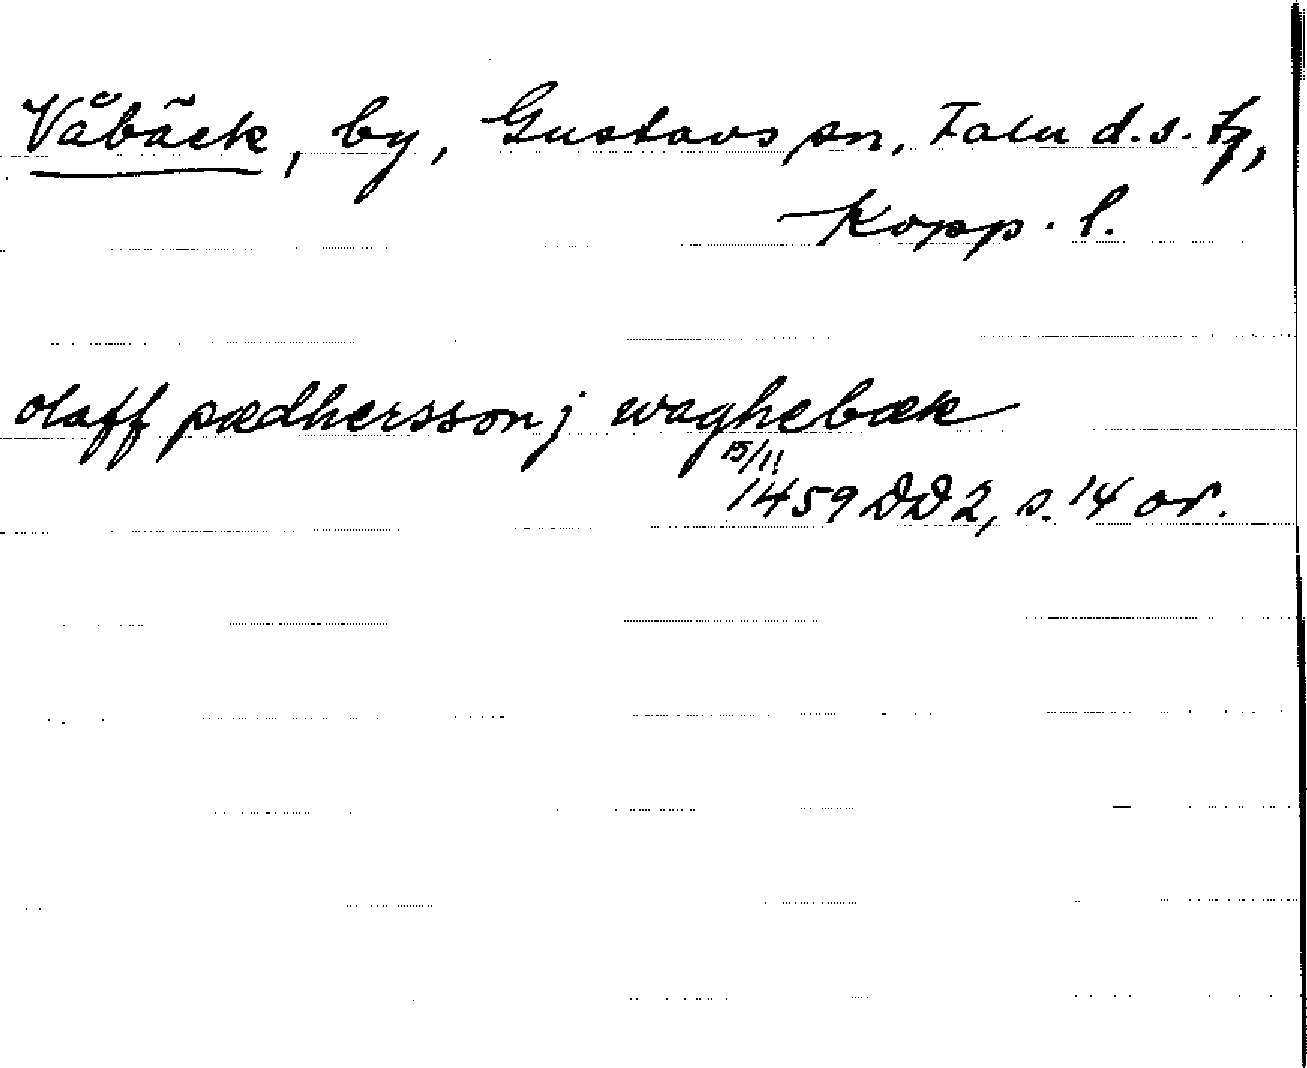 Våbäck, by, Gustavs sn, Falu d.s. tg,
Kopp. l.
olaff pædhersson j waghebæk
15/11
1459 DD2, s. 14 or.